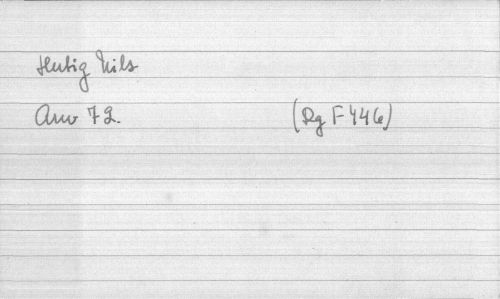 Hutig Nils
Anv 72. (Rg F 446)